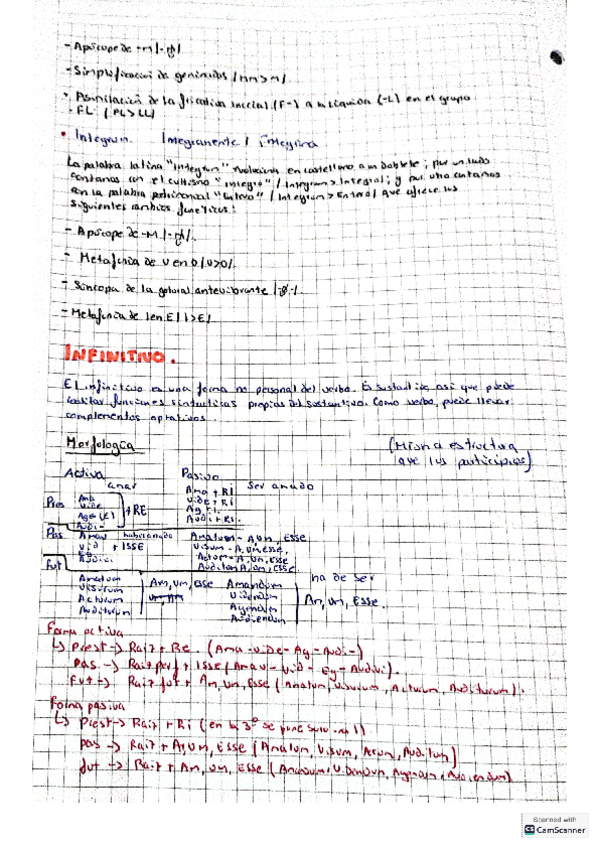 - Apócope de -m /-ø/
- Simplificación de geminadas / nn > n /.
• Asimilación de la fricativa inicial (F-) a la líquida (-L) en el grupo
- FL. / PL > LL /
• Integrum. Integramente / íntegra
La palabra latina "integrum" evoluciona en castellano a un doblete; por un lado
contamos con el cultismo "integro" / Integrum > Integral; y por otro contamos
con la palabra patrimonial "entero" / Integrum > Entero / que ofrece los
siguientes cambios fonéticos:
- Apócope de -M /-ø/.
- Metafonía de U en O /U>O/.
- Síncopa de la gutural antevibrante
- Metafonía de I en E / I > E /
INFINITIVO.
El infinitivo es una forma no personal del verbo. Es sustantivo, así que puede
realizar funciones sintácticas propias del sustantivo. Como verbo, puede llevar
complementos
Morfología (Misma estructura
que los participios)
Activa Pasivo
amar Ser amado
Pres Ama Ama + RI
Vide Vide + RI
Age (E) + RE Ag + I.
Audi- Audi + RI.
Pas Amav haber amado Amatum - A, um, ESSE
vid + ISSE Visum - A, um, esse,
Eg Actum - A, um, esse
Audivi Auditum A, um, ESSE
Fut Amaturum Am, um, esse Amandum ha de ser
Visurum Videndum Am, um, Esse.
Acturum Agendum
Auditurum Audiendum
Forma activa
↳ Prest → Raiz + Re. (Ama - vide - Ag - Audi-)
Pas. → Raiz perf + ISSE (Amav - vid - Eg - Audivi).
Fut → Raiz fut + Am, um, Esse (Amaturum, Visurum, Acturum, Auditurum).
Forma pasiva
↳ Prest → Raiz + Ri (en la 3º se pone solo -i)
pas → Raiz + A, um, Esse (Amatum, Visum, Actum, Auditum)
fut → Raiz + Am, um, Esse (Amandum, Videndum, Agendum, Audiendum)
Scanned with
CS CamScanner